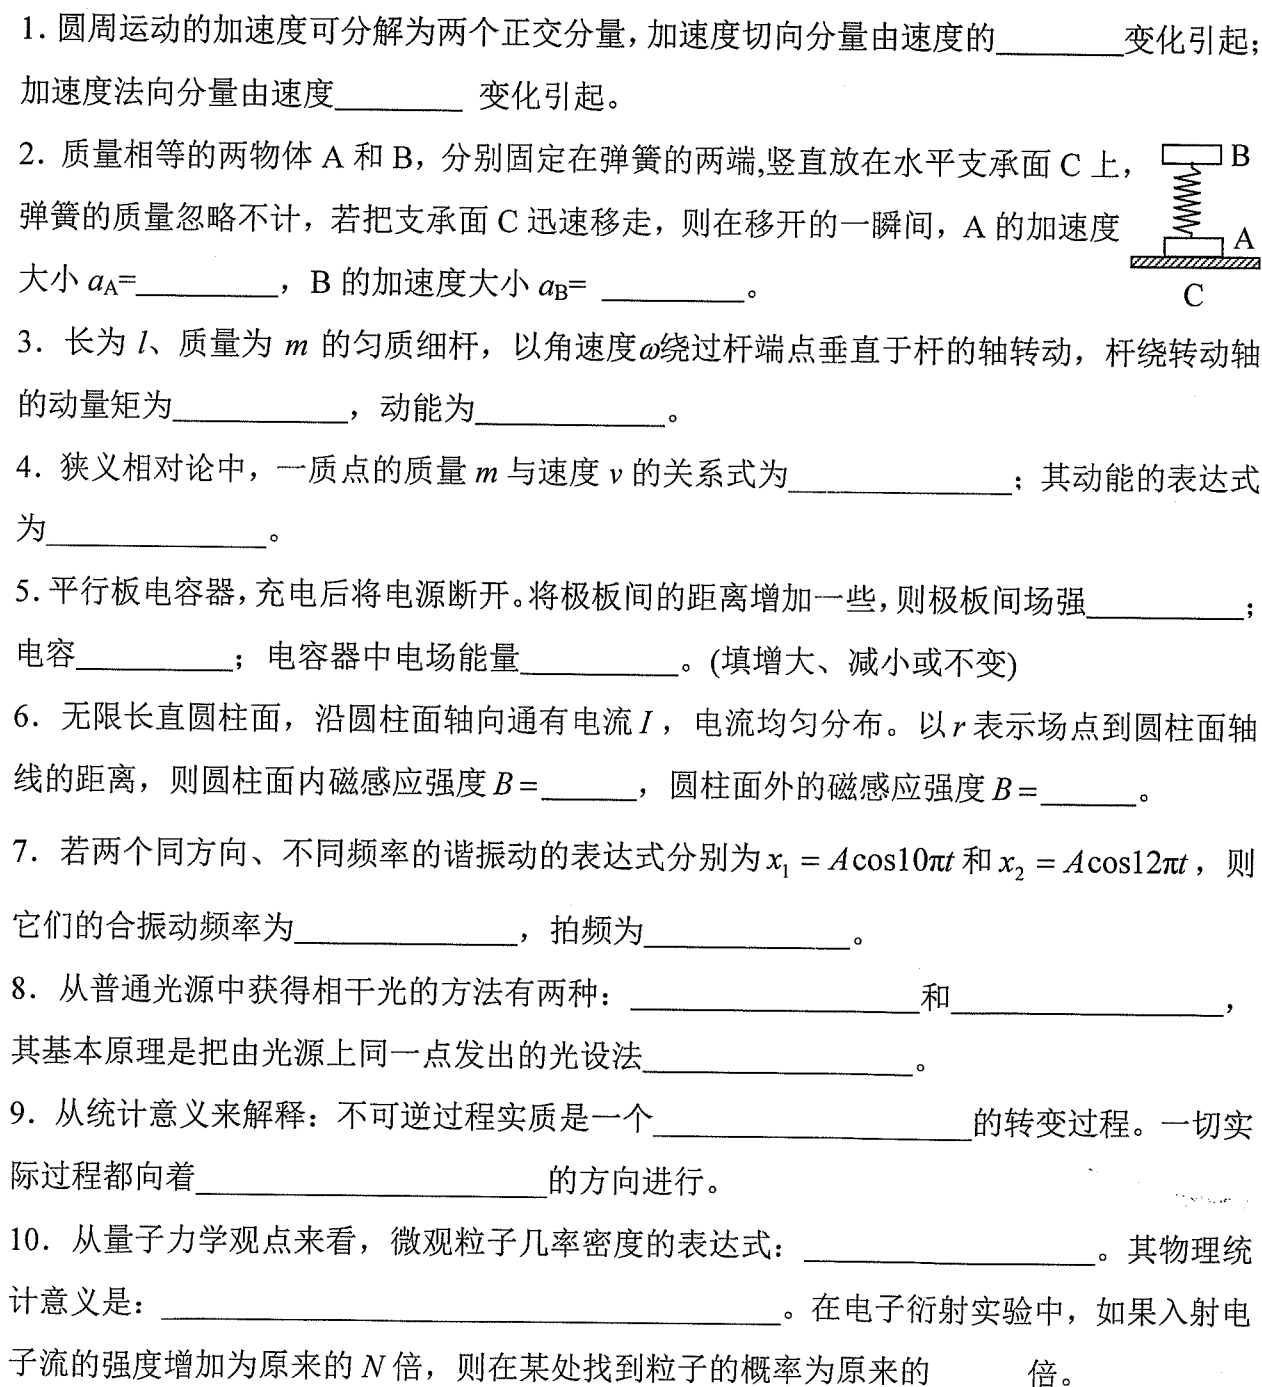 1. 圆周运动的加速度可分解为两个正交分量，加速度切向分量由速度的________变化引起；
加速度法向分量由速度________ 变化引起。
2. 质量相等的两物体 A 和 B，分别固定在弹簧的两端,竖直放在水平支承面 C 上，
弹簧的质量忽略不计，若把支承面 C 迅速移走，则在移开的一瞬间，A 的加速度
大小 aA=_________，B 的加速度大小 aB= _________。
B
A
C
3. 长为 l、质量为 m 的匀质细杆，以角速度ω绕过杆端点垂直于杆的轴转动，杆绕转动轴
的动量矩为___________，动能为____________。
4. 狭义相对论中，一质点的质量 m 与速度 v 的关系式为______________；其动能的表达式
为______________。
5. 平行板电容器，充电后将电源断开。将极板间的距离增加一些，则极板间场强__________；
电容__________；电容器中电场能量__________。(填增大、减小或不变)
6. 无限长直圆柱面，沿圆柱面轴向通有电流 I，电流均匀分布。以 r 表示场点到圆柱面轴
线的距离，则圆柱面内磁感应强度 B=______，圆柱面外的磁感应强度 B=______。
7. 若两个同方向、不同频率的谐振动的表达式分别为 x₁ = Acos10πt 和 x₂ = Acos12πt，则
它们的合振动频率为______________，拍频为_____________。
8. 从普通光源中获得相干光的方法有两种：__________________和_________________，
其基本原理是把由光源上同一点发出的光设法_________________。
9. 从统计意义来解释：不可逆过程实质是一个____________________的转变过程。一切实
际过程都向着______________________的方向进行。
10. 从量子力学观点来看，微观粒子几率密度的表达式：__________________。其物理统
计意义是：_______________________________________。在电子衍射实验中，如果入射电
子流的强度增加为原来的 N 倍，则在某处找到粒子的概率为原来的 倍。